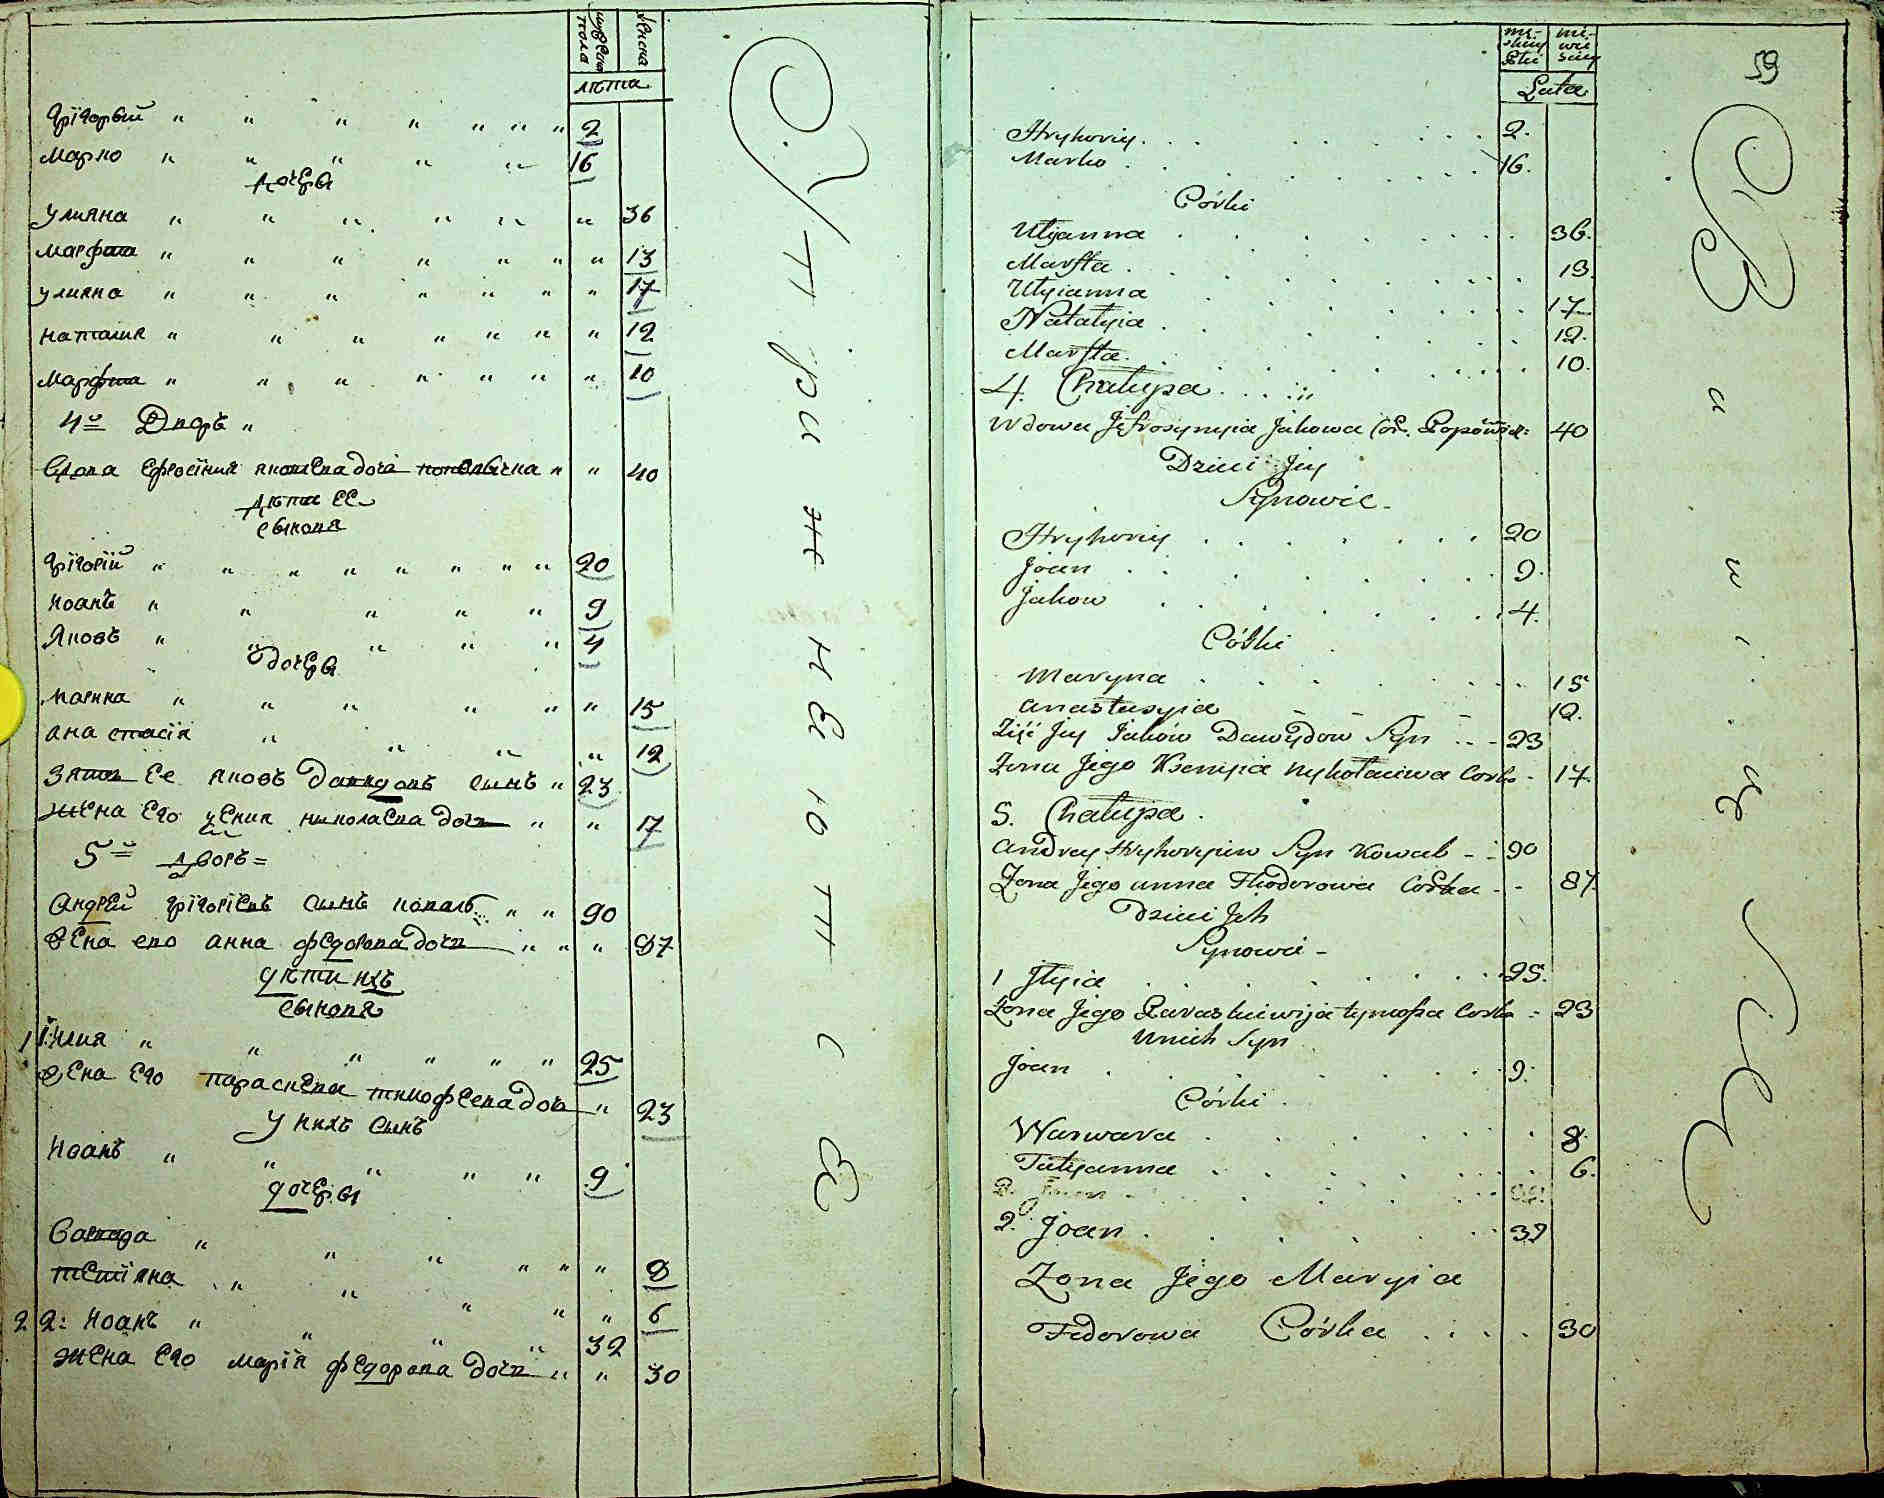 мужеска пола
женска
лѣта
Григорей 2
Марко 16
дочеры
Улияна 36
Марфта 13
Улияна 17
Наталия 12
Марфта 10
4й Дворъ
Вдова Ефросіния Яковлева дочь 40
Дѣти ее
сыновя
Григорій 20
Иоанъ 9
Яковъ 4
дочеры
Марина 15
Анастасія 12
Зять ее Яковъ Давидовъ сынъ 23
Жена его Ксения Николаева дочь 17
5й дворъ
Андрей Григоріевъ сынъ Коваль 90
Жена его Анна Федорова дочь 87
дѣти ихъ
сыновя
1 Илия 25
Жена его Параскева Тимофеева дочь 23
У нихъ сынъ
Иоанъ 9
дочеры
Варвара 8
Тетіяна 6
2 2: Иоанъ 32
Жена его Марія Федорова дочь 30
59
Lata
Hryhoriy 2.
Marko 16.
Córki
Ulyanna 36.
Marfta 13.
Ulyianna 17
Natalyia 12.
Marfta 10.
4. Chałupa
Wdowa Jefrosynyia Jakowa Cór. 40
Dzieci Jey
Synowie
Hryhoriy 20
Joan 9.
Jakow 4.
Córki
Maryna 15
Anastasyia 12.
Zięć Jey Jakow Dawydow Syn 23
Zona Jego Ksenyia Nykołaiewa Corka 17.
5. Chałupa.
Andrey Hryhoryiew Syn Kowal 90
Zona Jego Anna Fhodorowa Corka 87.
Dzieci Jch
Synowie
1 Jlyia 25.
Zona Jego Paraskiewija Corka 23
Unich Syn
Joan 9.
Córki
Warwara 8.
Tatyanna 6.
2. Joan 32
Zona Jego Maryia
Fedorowa Córka 30